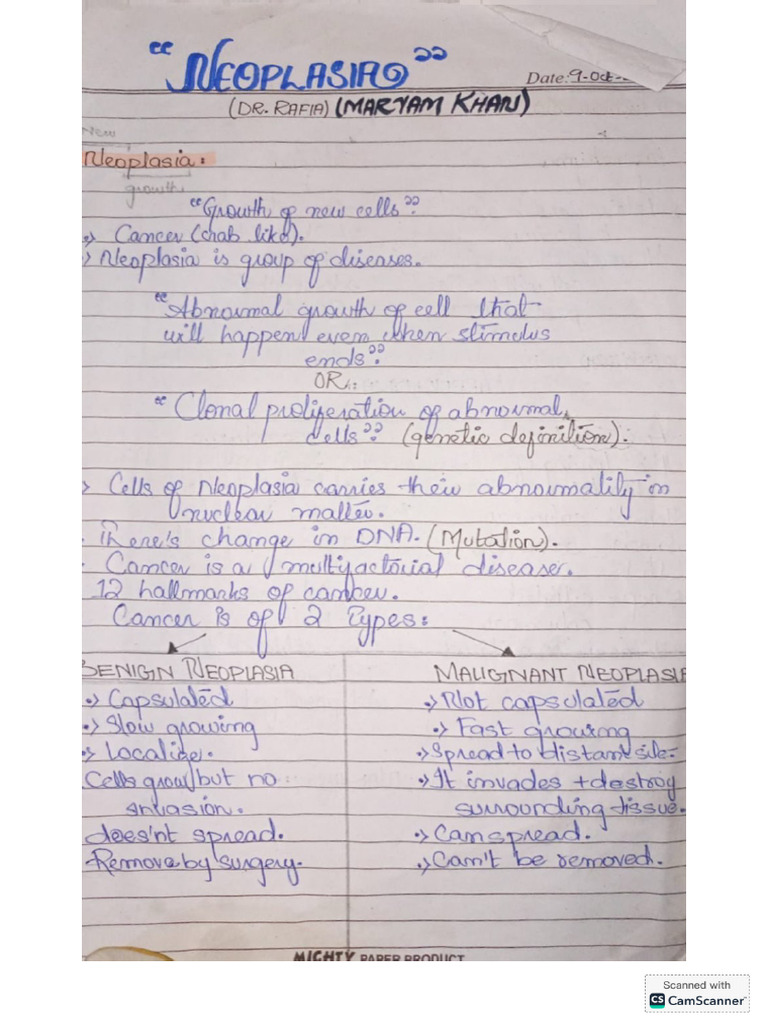 "NEOPLASIA"
Date: 9-Oct-
(DR. RAFIA) (MARYAM KHAN)
New
Neoplasia:
growth
"Growth of new cells"
Cancer (chab like).
Neoplasia is group of diseases.
"Abnormal growth of cell that
will happen even when stimulus
ends"
OR:
"Clonal proligeration of abnormal
cells" (genetic definition).
Cells of Neoplasia carries their abnormality in
nuclear matter.
There's change in DNA. (Mutation).
Cancer is a multifactorial disease.
12 hallmarks of cancer.
Cancer is of 2 Types:
BENIGN NEOPLASIA
Capsulated
Slow growing
Localize.
Cells grow but no
invasion.
does'nt spread.
Remove by surgery.
MALIGNANT NEOPLASIA
Not capsulated
Fast growing
Spread to distant site.
It invades + destroy
surrounding tissue.
Can spread.
Can't be removed.
MIGHTY PAPER PRODUCT
Scanned with
CS CamScanner